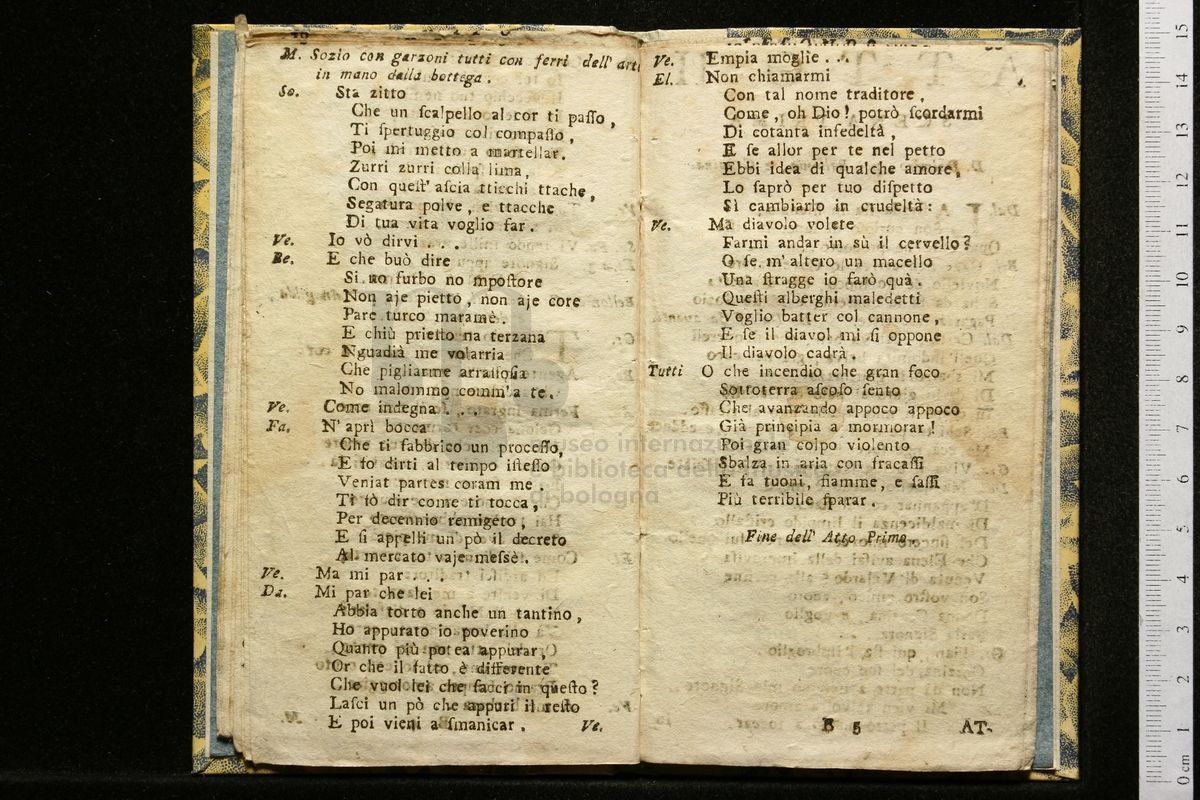 M. Sozio con garzoni tutti con ferri dell' arte
in mano dalla bottega.
So. Sta zitto
Che un ſcalpello al cor ti paſſo,
Ti ſpertuggio col compaſſo,
Poi mi metto a martellar.
Zurri zurri colla lima,
Con queſt' aſcia tticchi ttache,
Segatura polve, e ttacche
Di tua vita voglio far.
Ve. Io vò dirvi . . .
Be. E che buò dire
Si no furbo no mpoſtore
Non aje pietto, non aje core
Pare turco maramè.
E chiù prieſto na terzana
Nguadià me volarria
Che pigliarme arraſſoſia
No malommo comm' a te.
Ve. Come indegna! . .
Fa. N' aprì bocca
Che ti fabbrico un proceſſo,
E fo dirti al tempo iſteſſo
Veniat partes coram me.
Ti fò dir come ti tocca,
Per decennio remigeto,
E ſi appelli un pò il decreto
Al mercato vaje meſsè.
Ve. Ma mi par
Da. Mi par che lei
Abbia torto anche un tantino,
Ho appurato io poverino
Quanto più potea appurar,
Or che il fatto è differente
Che vuol lei che facci in queſto?
Laſci un pò che appuri il reſto
E poi vieni a ſmanicar. Ve.
Ve. Empia moglie . . .
El. Non chiamarmi
Con tal nome traditore,
Come, oh Dio! potrò ſcordarmi
Di cotanta infedeltà,
E ſe allor per te nel petto
Ebbi idea di qualche amore,
Lo ſaprò per tuo diſpetto
Sì cambiarlo in crudeltà:
Ve. Ma diavolo volete
Farmi andar in sù il cervello?
O ſe m' altero un macello
Una ſtragge io farò quà.
Queſti alberghi maledetti
Voglio batter col cannone,
E ſe il diavol mi ſi oppone
Il diavolo cadrà.
Tutti O che incendio che gran foco
Sottoterra aſcoſo ſento
Che avanzando appoco appoco
Già principia a mormorar!
Poi gran colpo violento
Sbalza in aria con fracaſſi
E fa tuoni, fiamme, e ſaſſi
Più terribile ſparar.
Fine dell' Atto Primo.
B 5 AT-
museo internazionale
biblioteca della musica
di bologna
15
14
13
12
11
10
9
8
7
6
5
4
3
2
1
0 cm